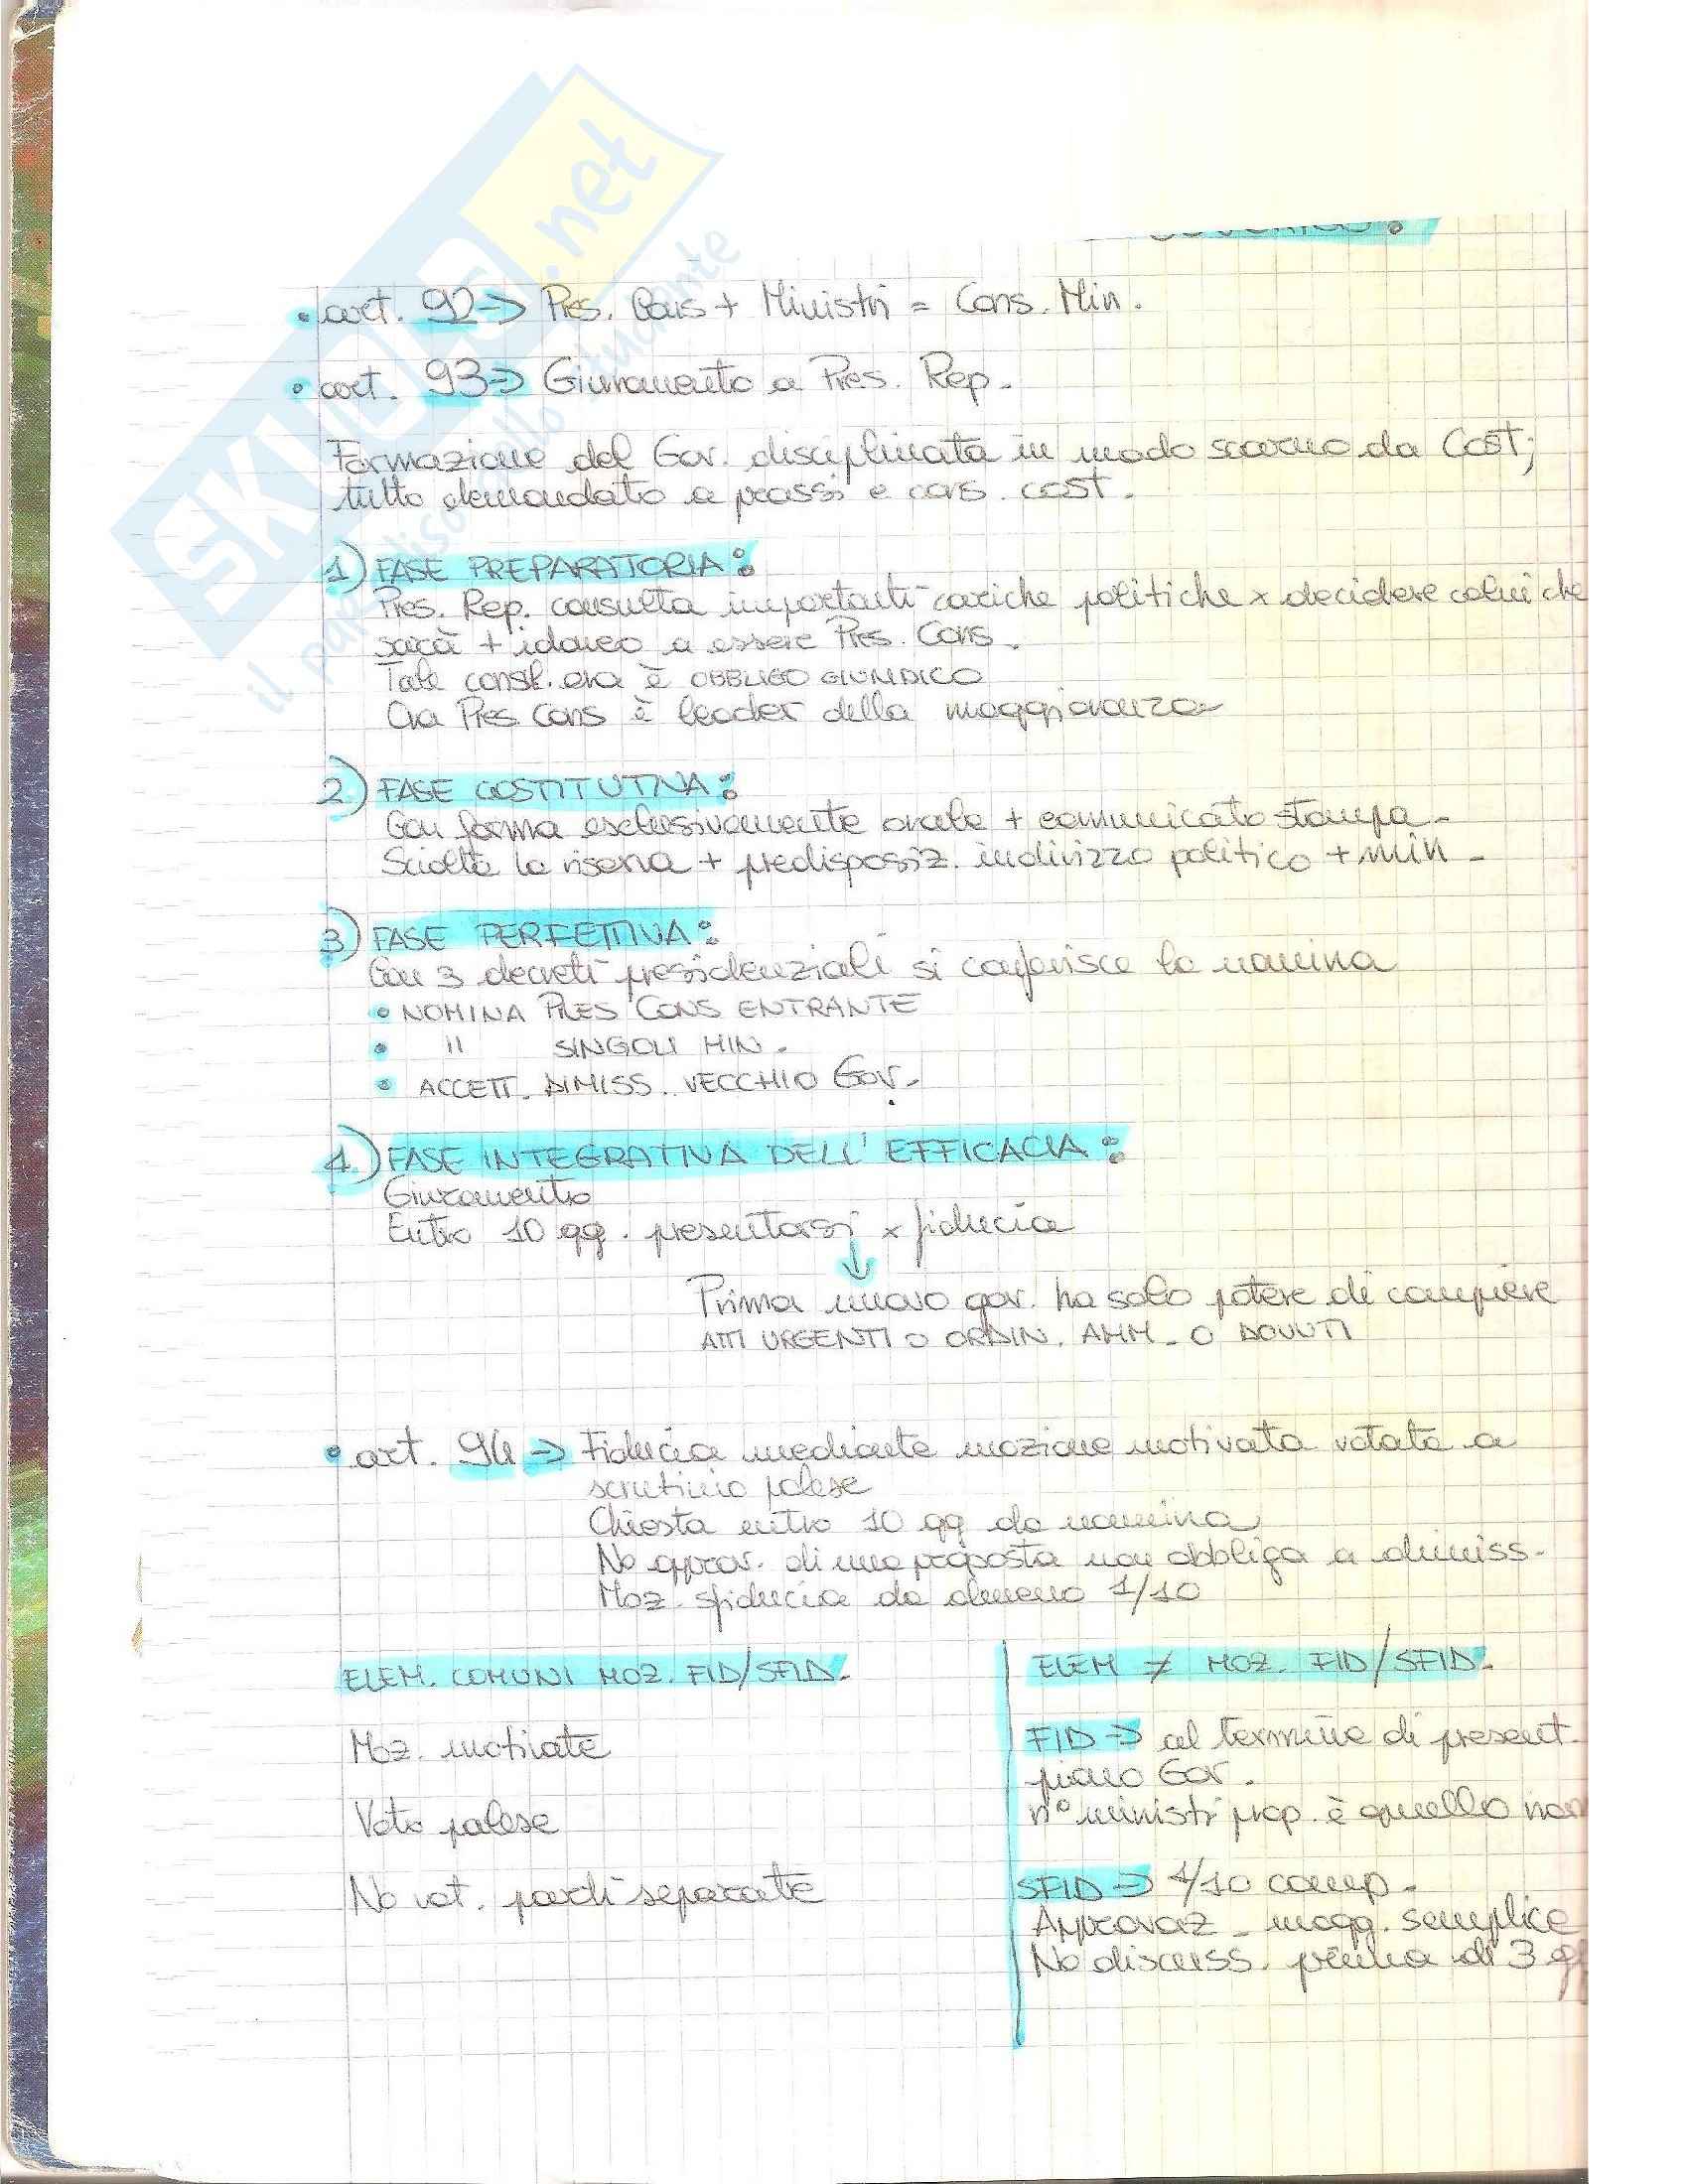 SKUOLA.net
il paradiso dello studente
• art. 92 => Pres. Cons + Ministri = Cons. Min.
• art. 93 => Giuramento a Pres. Rep.
Formazione del Gov. disciplinata in modo scarno da Cost;
tutto demandato a prassi e cons. cost.
1) FASE PREPARATORIA:
Pres. Rep. consulta importanti cariche politiche x decidere colui che
sarà + idoneo a essere Pres. Cons.
Tale è OBBLIGO GIURIDICO
Ora Pres Cons è leader della maggioranza
2) FASE COSTITUTIVA:
Con forma esclusivamente orale + comunicato stampa.
Sciolta la riserva + predisposiz. indirizzo politico + min.
3) FASE PERFETTIVA:
Con 3 decreti presidenziali si conferisce la nomina
• NOMINA PRES CONS ENTRANTE
• " SINGOLI MIN.
• ACCETT. DIMISS. VECCHIO GOV.
4.) FASE INTEGRATIVA DELL'EFFICACIA:
Giuramento
Entro 10 gg. presentarsi x fiducia
↓
Prima nuovo gov. ha solo potere di compiere
ATTI URGENTI O ORDIN. AMM. O DOVUTI
• art. 94 => Fiducia mediante mozione motivata votata a
scrutinio palese
Chiesta entro 10 gg da nomina
No approv. di una proposta non obbliga a dimiss.
Moz. sfiducia da almeno 1/10
ELEM. COMUNI MOZ. FID/SFID.
Moz. motivate
Voto palese
No vot. parti separate
ELEM ≠ MOZ. FID/SFID.
FID => al termine di present.
piano Gov.
n° ministri prop. è quello
SFID => 1/10 comp.
Approvaz. magg. semplice
No discuss. prima di 3